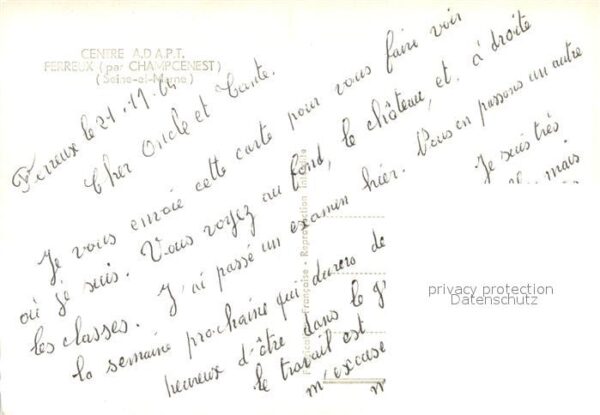 CENTRE A.D.A.P.T.
FERREUX (par CHAMPCENEST)
(Seine-et-Marne)
Ferreux le 21.11.64
Cher Oncle et Tante.
Je vous envoie cette carte pour vous faire voir
où je suis. Vous voyez au fond, le château, et à droite
les classes. J'ai passé un examen hier. Nous en passons un autre
la semaine prochaine qui durera de
Je suis très
heureux d'être dans le
mais
le travail est
m'excuse
Française - Reproduction Interdite
privacy protection
Datenschutz